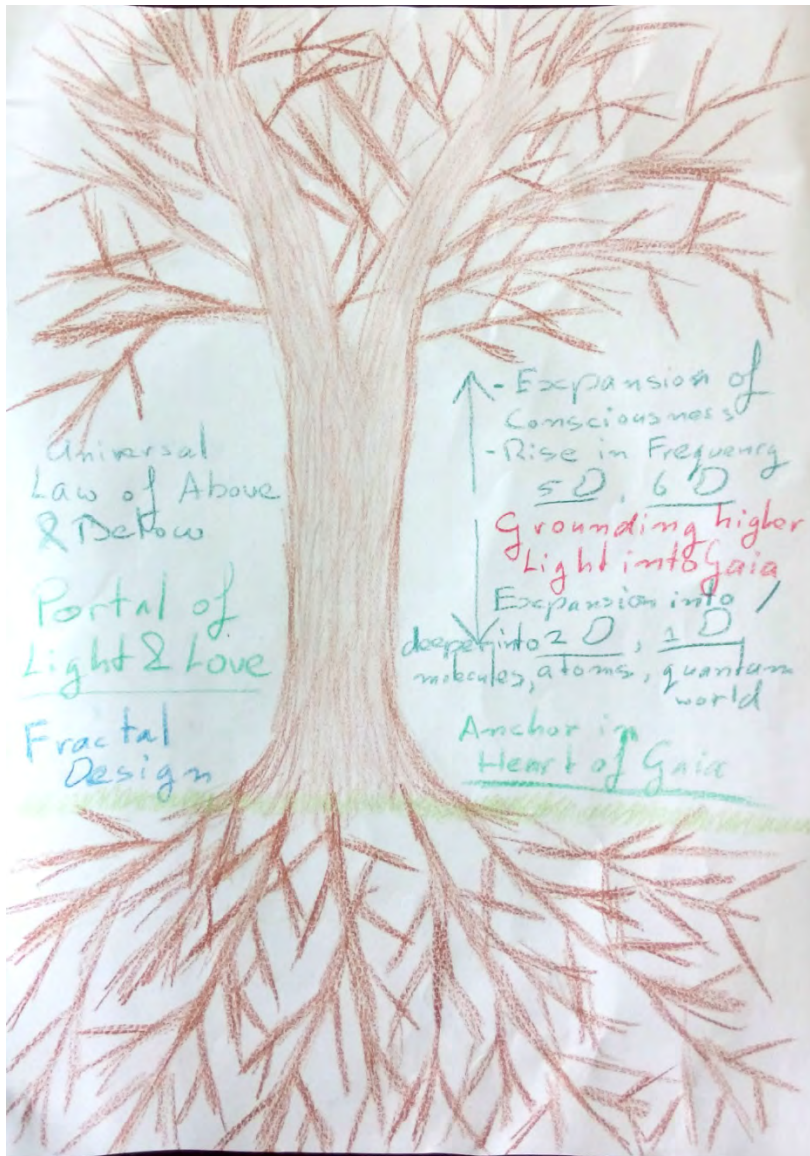 Universal
Law of Above
& Below
Portal of
Light & Love
Fractal
Design
- Expansion of
Consciousness
- Rise in Frequency
5D, 6D
Grounding higher
Light into Gaia
Expansion into /
deeper into 2D, 1D
molecules, atoms, quantum
world
Anchor in
Heart of Gaia